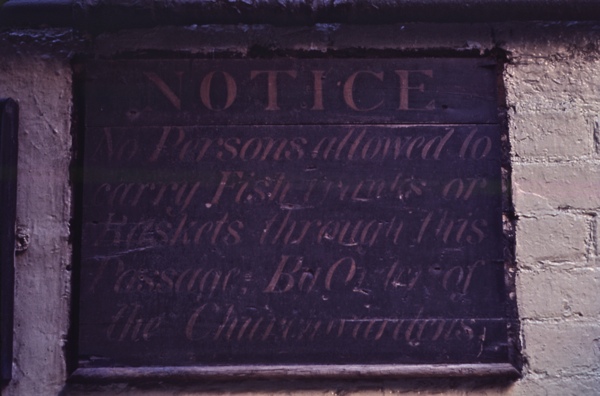 NOTICE
No Persons allowed to
carry Fish trunks or
Baskets through this
Passage: By Order of
the Churchwardens,